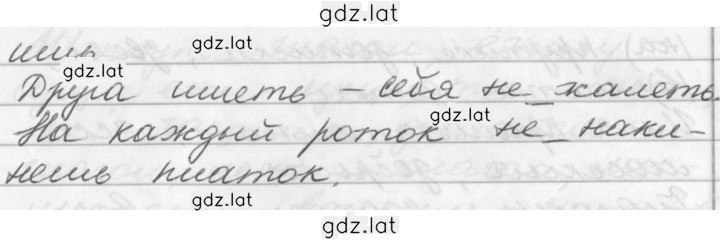 gdz.lat
gdz.lat
gdz.lat
Друга иметь – себя не_жалеть.
gdz.lat
На каждый роток не_наки-
нешь платок.
gdz.lat
gdz.lat